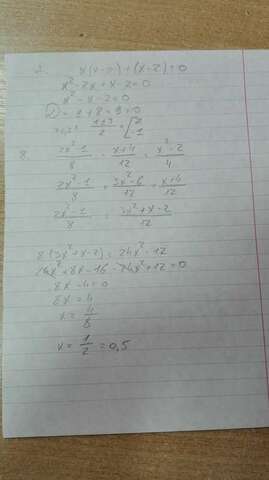 2. x(x-2)+(x-2)=0
x²-2x+x-2=0
x²-x-2=0
D=1+8=9=0
x₁,₂= (1±3)/2 = [2 -1
8. (2x²-1)/8 - (x+4)/12 = (x²-2)/4
(2x²-1)/8 = (3x²-6)/12 + (x+4)/12
(2x²-1)/8 = (3x²+x-2)/12
8(3x²+x-2)=24x²-12
24x²+8x-16-24x²+12=0
8x-4=0
8x=4
x=4/8
x=1/2=0,5